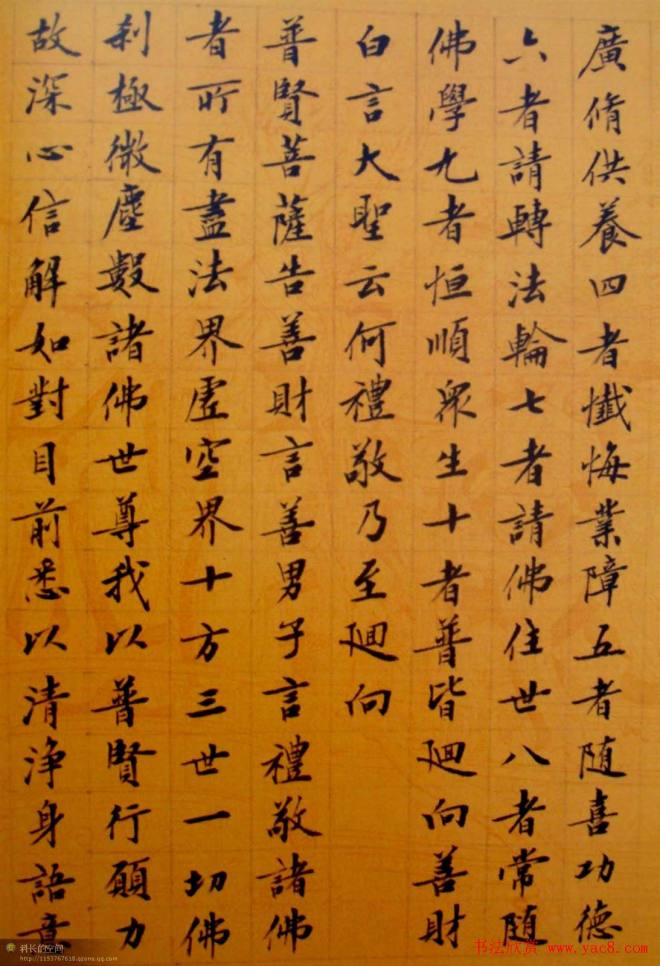 廣脩供養四者懺悔業障五者随喜功德
六者請轉法輪七者請佛住世八者常随
佛學九者恒順眾生十者普皆廻向善財
白言大聖云何禮敬乃至廻向
普賢菩薩告善財言善男子言禮敬諸佛
者所有盡法界虛空界十方三世一切佛
刹極微塵數諸佛世尊我以普賢行願力
故深心信解如對目前悉以清淨身語意
科长的空间
http://1153767618.qzone.qq.com
书法欣赏 www.yac8.com